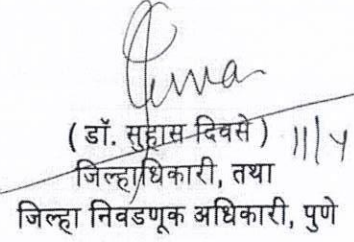 ( डॉ. सुहास दिवसे ) ११/४
जिल्हाधिकारी, तथा
जिल्हा निवडणूक अधिकारी, पुणे